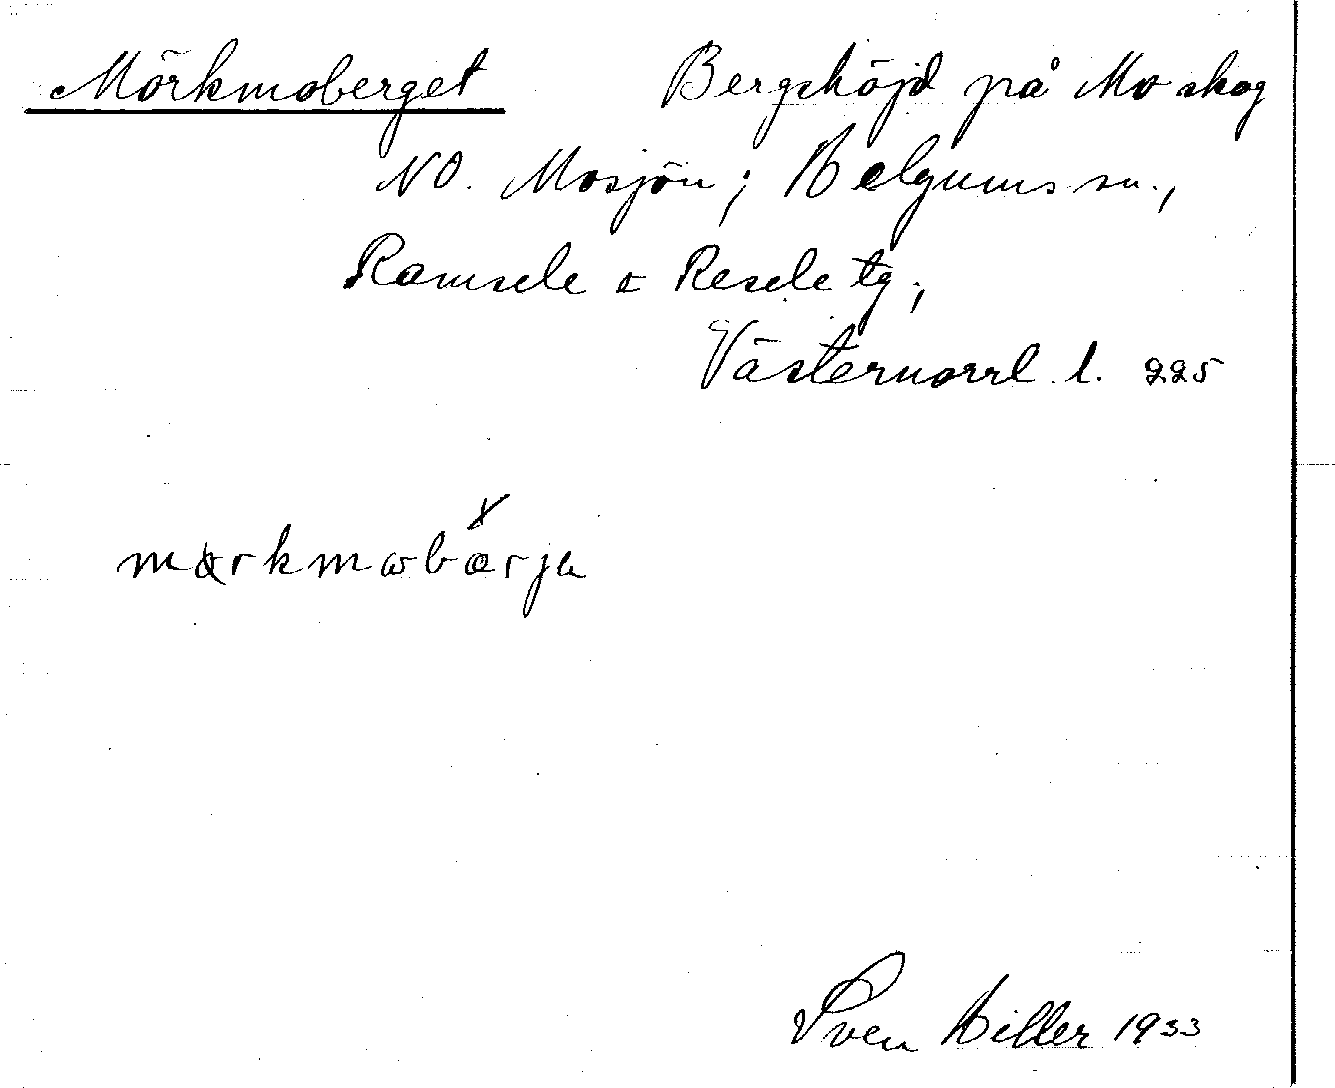 Mörkmoberget Bergshöjd på Mo skog
NO. Mosjön; Helgums sn.,
Ramsele o Resele tg;
Västernorrl. l. 225
Sven Hiller 1933